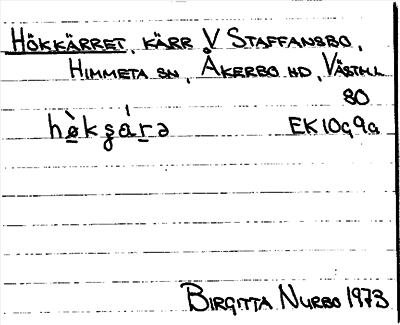 HÖKKÄRRET, KÄRR V STAFFANSBO,
HIMMETA SN, ÅKERBO HD, VÄSTML
80
hø̀kʂárə EK10g9a
BIRGITTA NURBO 1973